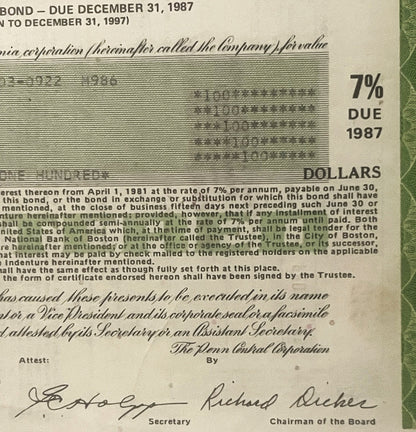 BOND – DUE DECEMBER 31, 1987
N TO DECEMBER 31, 1997)
nia corporation (hereinafter called the Company), for value
03-0922 M986
*100*********
**100********
***100*******
****100******
*****100*****
7%
DUE
1987
ONE HUNDRED*
DOLLARS
erest thereon from April 1, 1981 at the rate of 7% per annum, payable on June 30,
this bond, or the bond in exchange or substitution for which this bond shall have
mentioned, at the close of business fifteen days next preceding such June 30 or
nture hereinafter mentioned; provided, however, that if any installment of interest
shall be compounded semi-annually at the rate of 7% per annum until paid. Both
ed States of America which, at the time of payment, shall be legal tender for the
National Bank of Boston (hereinafter called the Trustee), in the City of Boston,
re hereinafter mentioned; or at the office or agency of the Trustee, or its successor,
hat interest may be paid by check mailed to the registered holders on the applicable
Indenture hereinafter mentioned.
hall have the same effect as though fully set forth at this place.
the form of certificate endorsed hereon shall have been signed by the Trustee.
has caused these presents to be executed in its name
nt or a Vice President and its corporate seal or a facsimile
d attested by its Secretary or an Assistant Secretary.
The Penn Central Corporation
Attest:
By
Richard Dicker
Secretary
Chairman of the Board